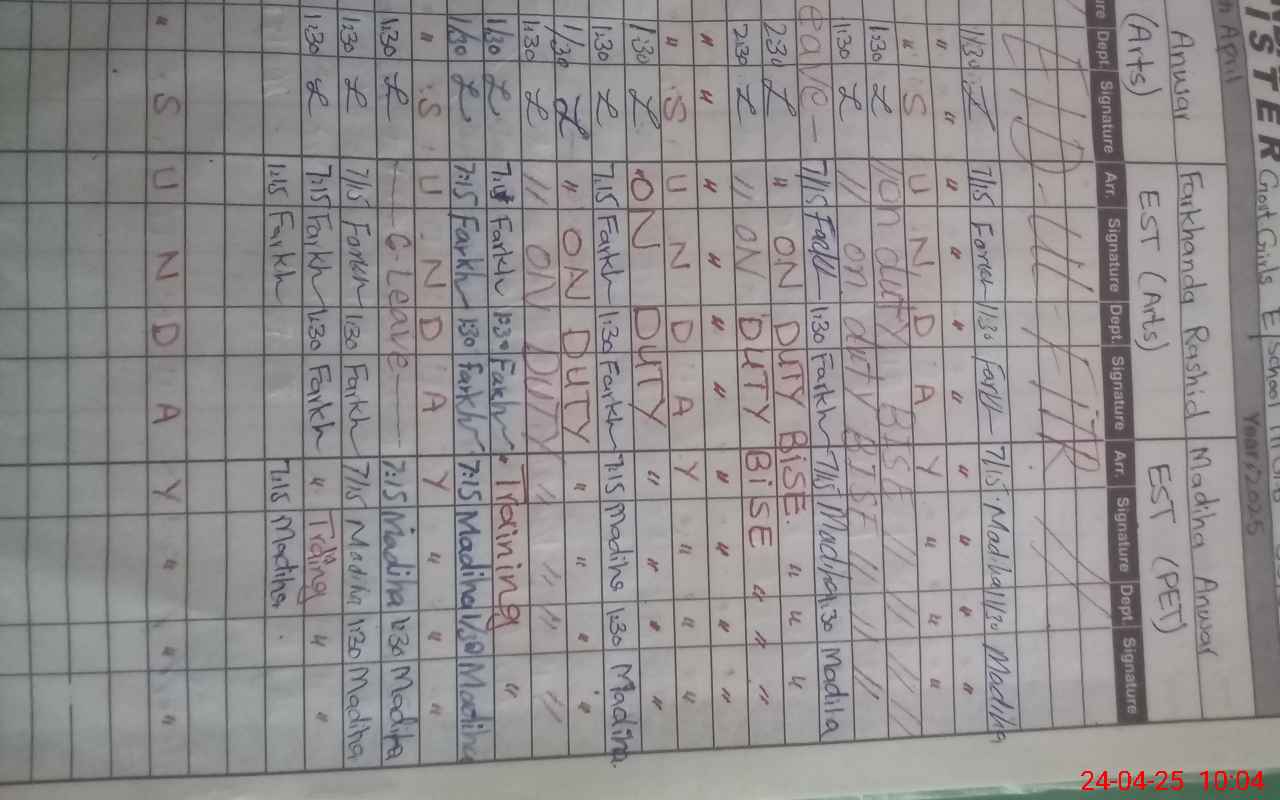 ISTER Govt Girls E School
April Year 2025
Anwar Farkhanda Rashid Madiha Anwar
(Arts) EST (Arts) EST (PET)
Dept. Signature Arr. Signature Dept. Signature Arr. Signature Dept. Signature
EID-UL-FITR
1/30 L 7/15 Farkh 1/30 Farkh 7/15 Madiha 1/30 Madiha
" " " " " " " " " "
" S U N D A Y " " "
1:30 L // On duty BISE // // //
1:30 L // on duty BISE // // //
eave - 7/15 Farkh 1:30 Farkh 7/15 Madiha 1:30 Madiha
2:30 L " ON DUTY BISE. " " "
2:30 L // ON DUTY BISE " " "
" " " " " " " " "
" S U N D A Y " " "
1:30 L "ON DUTY " " " "
1:30 L 7:15 Farkh 1:30 Farkh 7:15 Madiha 1:30 Madiha.
1/30 L " ON DUTY " " " "
1:30 L // ON DUTY // // // //
1/30 L 7:15 Farkh 1:30 Farkh " Training "
1/30 L 7:15 Farkh 1:30 Farkh 7:15 Madiha 1/30 Madiha
" S U N D A Y " " "
1:30 L C-Leave 7:15 Madiha 1:30 Madiha
1:30 L 7/15 Farkh 1:30 Farkh 7/15 Madiha 1:30 Madiha
1:30 L 7:15 Farkh 1:30 Farkh " Traing " "
7:15 Farkh 7:15 Madiha
" S U N D A Y " " "
24-04-25 10:04